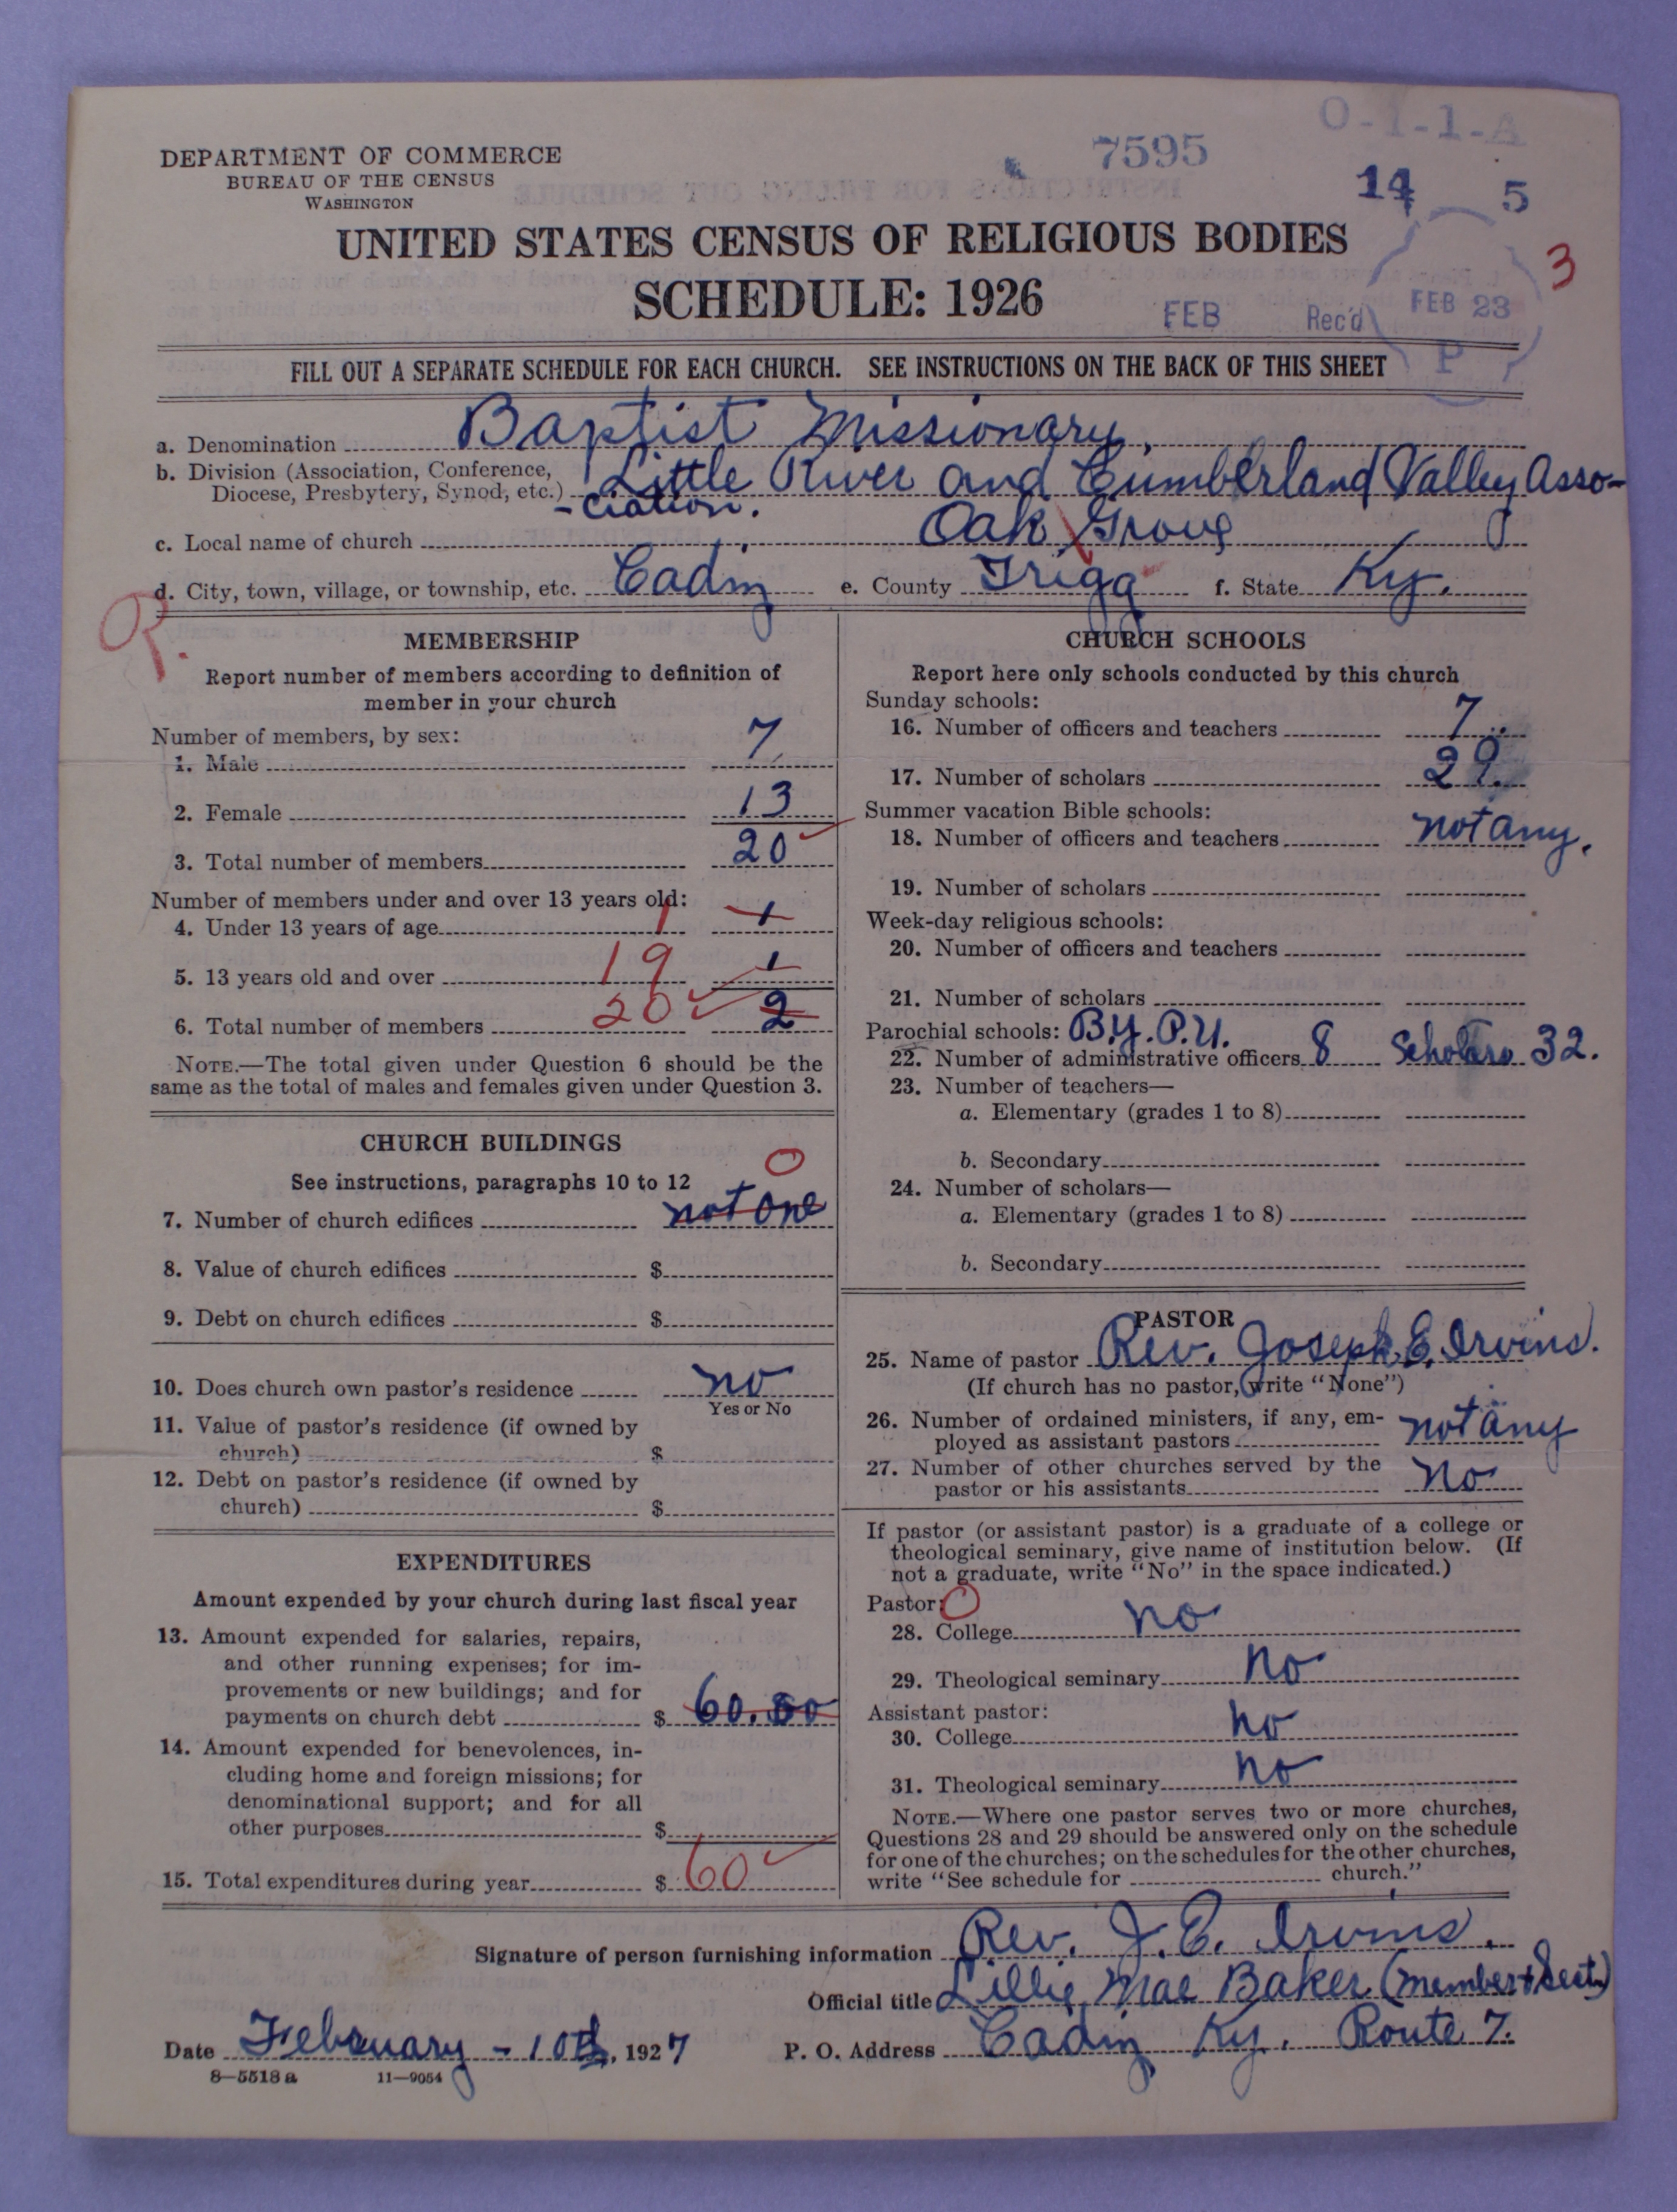 O-1-1-A
DEPARTMENT OF COMMERCE
BUREAU OF THE CENSUS
WASHINGTON
7595
14 5
UNITED STATES CENSUS OF RELIGIOUS BODIES
SCHEDULE: 1926
3
FEB Rec'd FEB 23 P
FILL OUT A SEPARATE SCHEDULE FOR EACH CHURCH. SEE INSTRUCTIONS ON THE BACK OF THIS SHEET
a. Denomination Baptist Missionary.
b. Division (Association, Conference, Little River and Cumberland Valley Asso-
Diocese, Presbytery, Synod, etc.) -ciation.
c. Local name of church Oak Grove
d. City, town, village, or township, etc. Cadiz e. County Trigg f. State Ky.
MEMBERSHIP
Report number of members according to definition of
member in your church
Number of members, by sex:
1. Male 7
2. Female 13
3. Total number of members 20
Number of members under and over 13 years old:
4. Under 13 years of age 1 1
5. 13 years old and over 19 1
6. Total number of members 20 2
NOTE.—The total given under Question 6 should be the
same as the total of males and females given under Question 3.
CHURCH BUILDINGS
See instructions, paragraphs 10 to 12 0
7. Number of church edifices not one
8. Value of church edifices $
9. Debt on church edifices $
10. Does church own pastor's residence no
Yes or No
11. Value of pastor's residence (if owned by
church) $
12. Debt on pastor's residence (if owned by
church) $
EXPENDITURES
Amount expended by your church during last fiscal year
13. Amount expended for salaries, repairs,
and other running expenses; for im-
provements or new buildings; and for
payments on church debt $ 60.00
14. Amount expended for benevolences, in-
cluding home and foreign missions; for
denominational support; and for all
other purposes $
15. Total expenditures during year $ 60
CHURCH SCHOOLS
Report here only schools conducted by this church
Sunday schools:
16. Number of officers and teachers 7
17. Number of scholars 29.
Summer vacation Bible schools:
18. Number of officers and teachers not any.
19. Number of scholars
Week-day religious schools:
20. Number of officers and teachers
21. Number of scholars
Parochial schools: B.Y.P.U.
22. Number of administrative officers 8 Scholars 32.
23. Number of teachers—
a. Elementary (grades 1 to 8)
b. Secondary
24. Number of scholars—
a. Elementary (grades 1 to 8)
b. Secondary
PASTOR
25. Name of pastor Rev. Joseph E. Irvins.
(If church has no pastor, write "None")
26. Number of ordained ministers, if any, em-
ployed as assistant pastors not any
27. Number of other churches served by the
pastor or his assistants no
If pastor (or assistant pastor) is a graduate of a college or
theological seminary, give name of institution below. (If
not a graduate, write "No" in the space indicated.)
Pastor: 0
28. College no
29. Theological seminary no
Assistant pastor:
30. College no
31. Theological seminary no
NOTE.—Where one pastor serves two or more churches,
Questions 28 and 29 should be answered only on the schedule
for one of the churches; on the schedules for the other churches,
write "See schedule for church."
Signature of person furnishing information Rev. J. E. Irvins.
Official title Lillie Mae Baker (member + Sect.)
Date February - 10th, 1927 P. O. Address Cadiz Ky. Route 7.
8—5518 a 11—9054